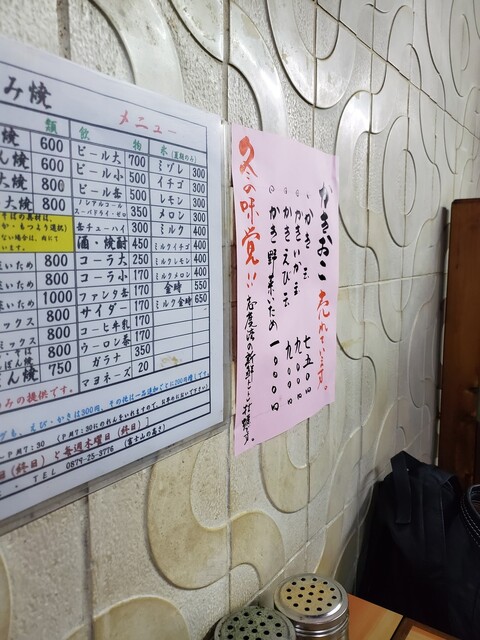 み焼
メニュー
類 飲 物 氷(夏期のみ)
焼 600 ビール大 700 ミゾレ 300
ん焼 600 ビール小 500 イチゴ 300
大焼 800 ビール缶 500 レモン 300
大焼 800 ノンアルコール スーパードライ・ゼロ 350 メロン 300
缶チューハイ 300 ミルク 400
酒・焼酎 450 ミルクイチゴ 400
いため 800 コーラ大 250 ミルクレモン 400
いため 800 コーラ小 170 ミルクメロン 400
いため 1000 ファンタ缶 170 金時 550
ックス 800 サイダー 170 ミルク金時 650
ミックス 800 コーヒ牛乳 170
ぽん焼 800 ウーロン茶 170
ん焼 750 ガラナ 350
マヨネーズ 20
のみの提供です。
ＰＭ7:30
日(終日)と毎週木曜日(終日)
TEL 0879-25-3776
かきおこ 売れています。
かき玉 七五〇円
かきいか玉 九〇〇円
かきえび玉 九〇〇円
かき野菜いため 一〇〇〇円
冬の味覚!! 志度湾の新鮮